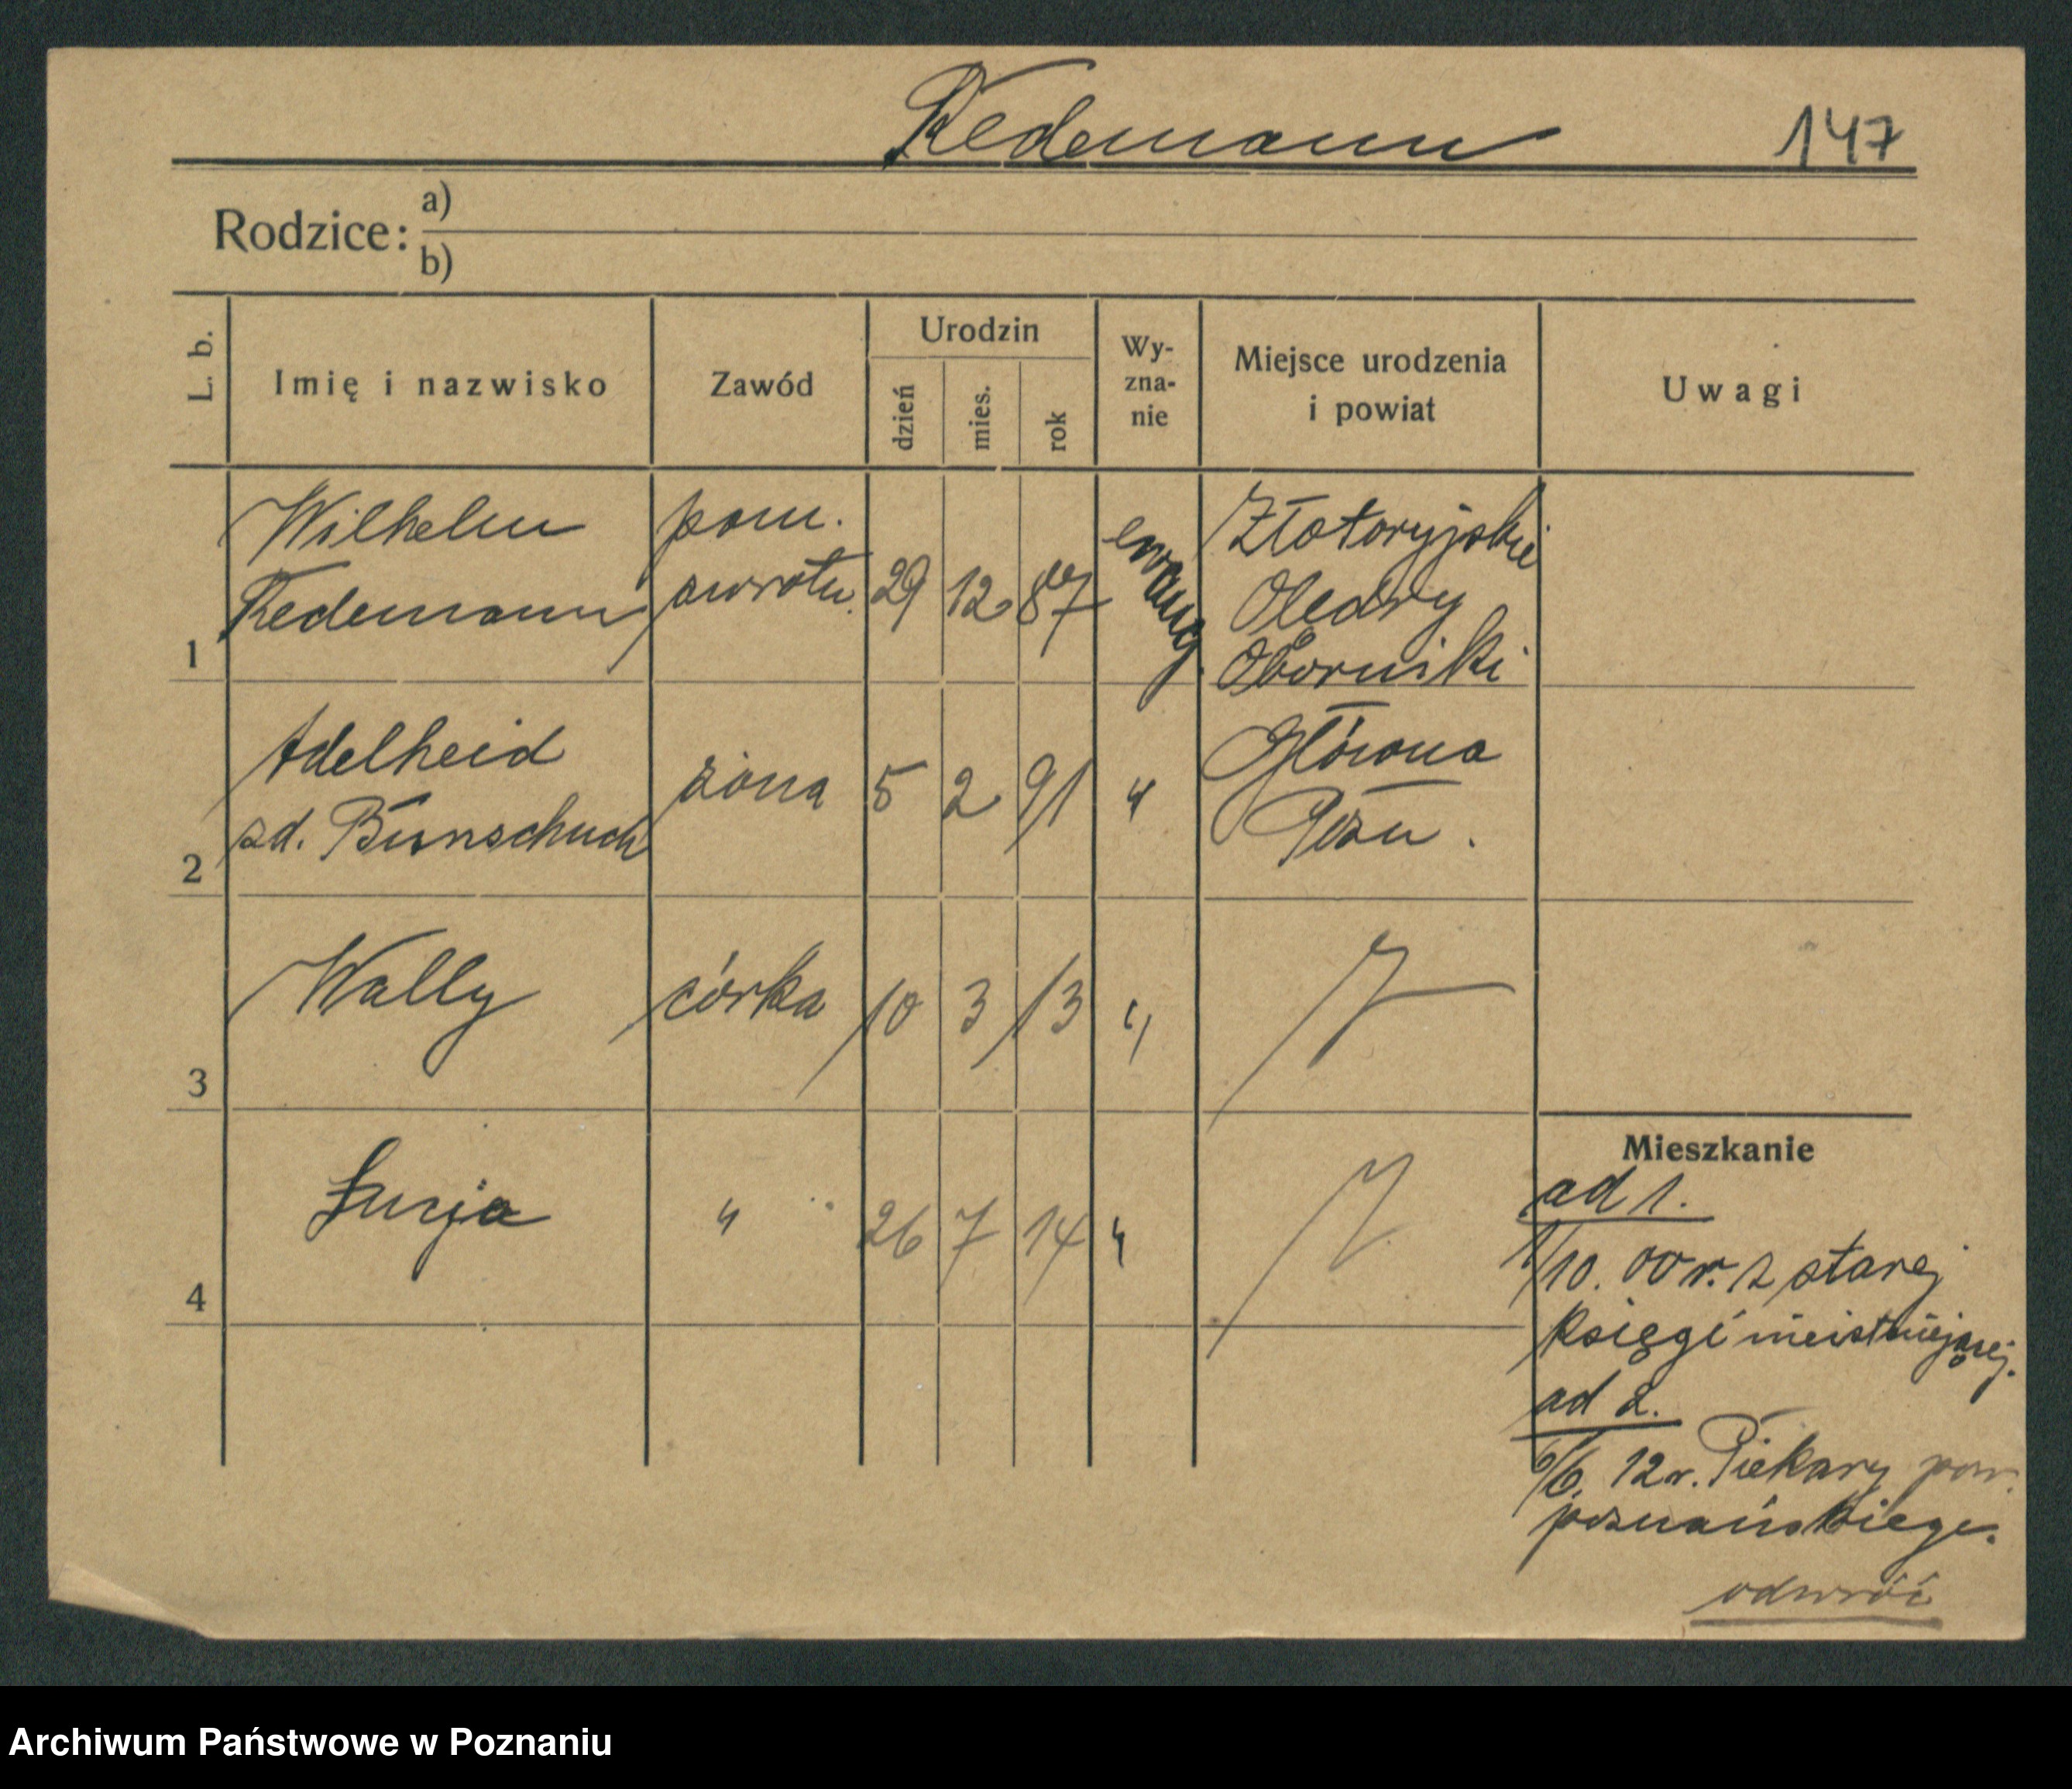 Redemann 147
Rodzice: a)
b)
L. b.
Imię i nazwisko
Zawód
Urodzin
dzień
mies.
rok
Wy-
zna-
nie
Miejsce urodzenia
i powiat
Uwagi
1
Wilhelm
Redemann
pom.
zwrotn.
29 12 87
ewang.
Złotoryjskie
Olędry
Oborniki
2
Adelheid
zd. Bunschuch
żona
5 2 91
"
Główna
Pozn.
3
Wally
córka
10 3 13
"
4
Łucja
"
26 7 14
"
Mieszkanie
ad 1.
1/10. 00 r. z starej
księgi nieistniejącej.
ad 2.
6/6. 12 r. Piekary pow.
poznańskiego.
odwróć
Archiwum Państwowe w Poznaniu